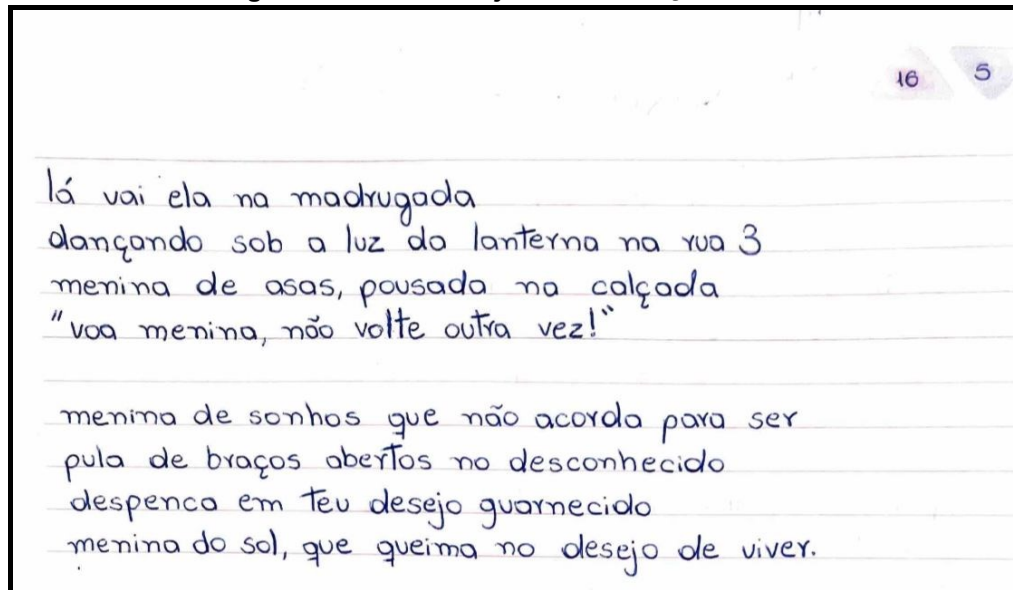 16 5
lá vai ela na madrugada
dançando sob a luz da lanterna na rua 3
menina de asas, pousada na calçada
"voa menina, não volte outra vez!"
menina de sonhos que não acorda para ser
pula de braços abertos no desconhecido
despenca em teu desejo guarnecido
menina do sol, que queima no desejo de viver.